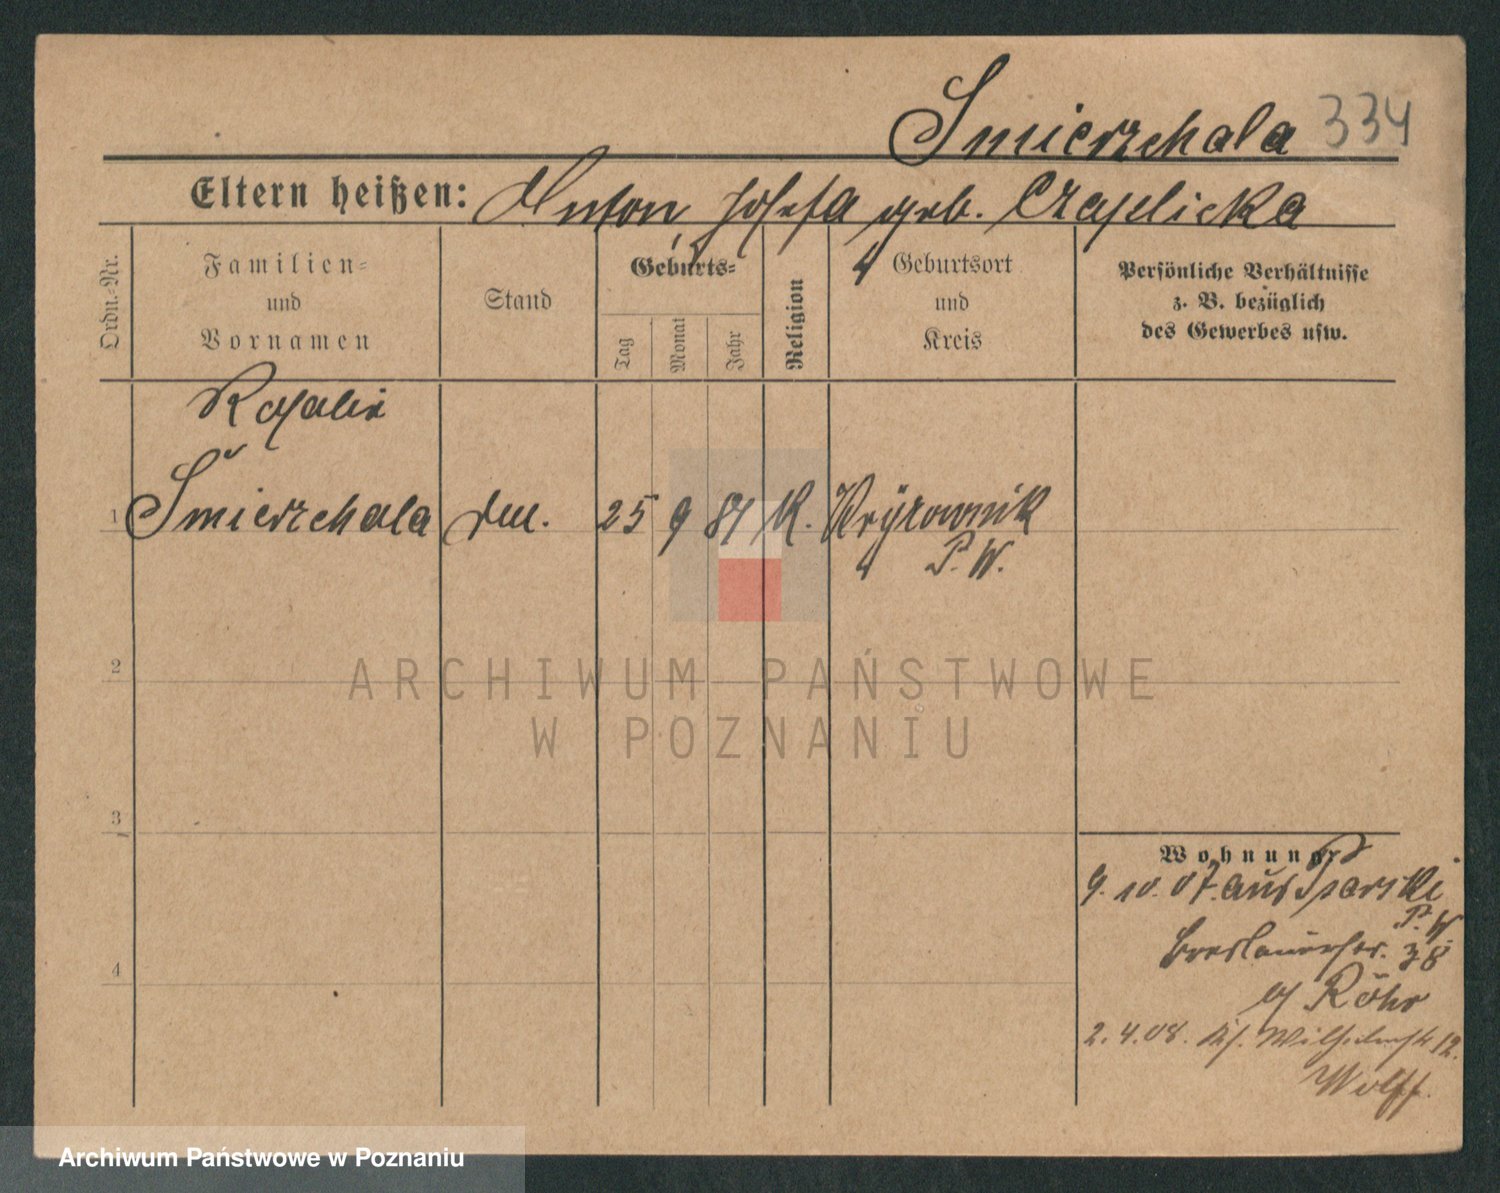 Smierzchala 334
Eltern heißen: Anton, Josefa geb. Czaplicka
Ordn.-Nr.
Familien- und Vornamen
Stand
Geburts-
Tag
Monat
Jahr
Religion
Geburtsort und Kreis
Persönliche Verhältnisse
z. B. bezüglich
des Gewerbes usw.
Rosalie
1 Śmierzchala 25 9 87 K.
P. W.
2
3
4
Wohnung
9.10.07. aus Parski
P. W
Breslauerstr. 38
Röhr
2.4.08. Wilhelmstr 12.
Wolff.
ARCHIWUM PAŃSTWOWE
W POZNANIU
Archiwum Państwowe w Poznaniu